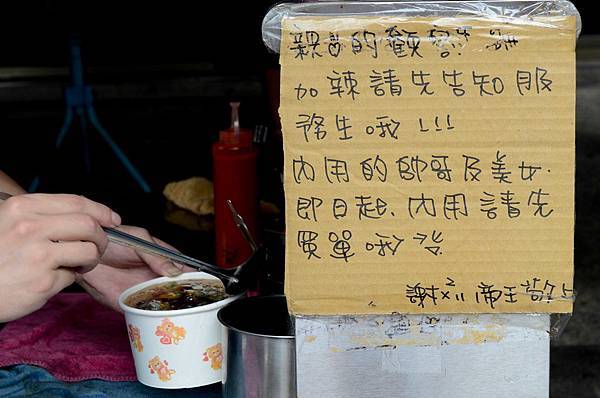 親的顧客
加辣請先告知服
務生哦!!!
內用的帥哥及美女.
即日起.內用請先
買單哦
謝×²ıı 帝王敬上